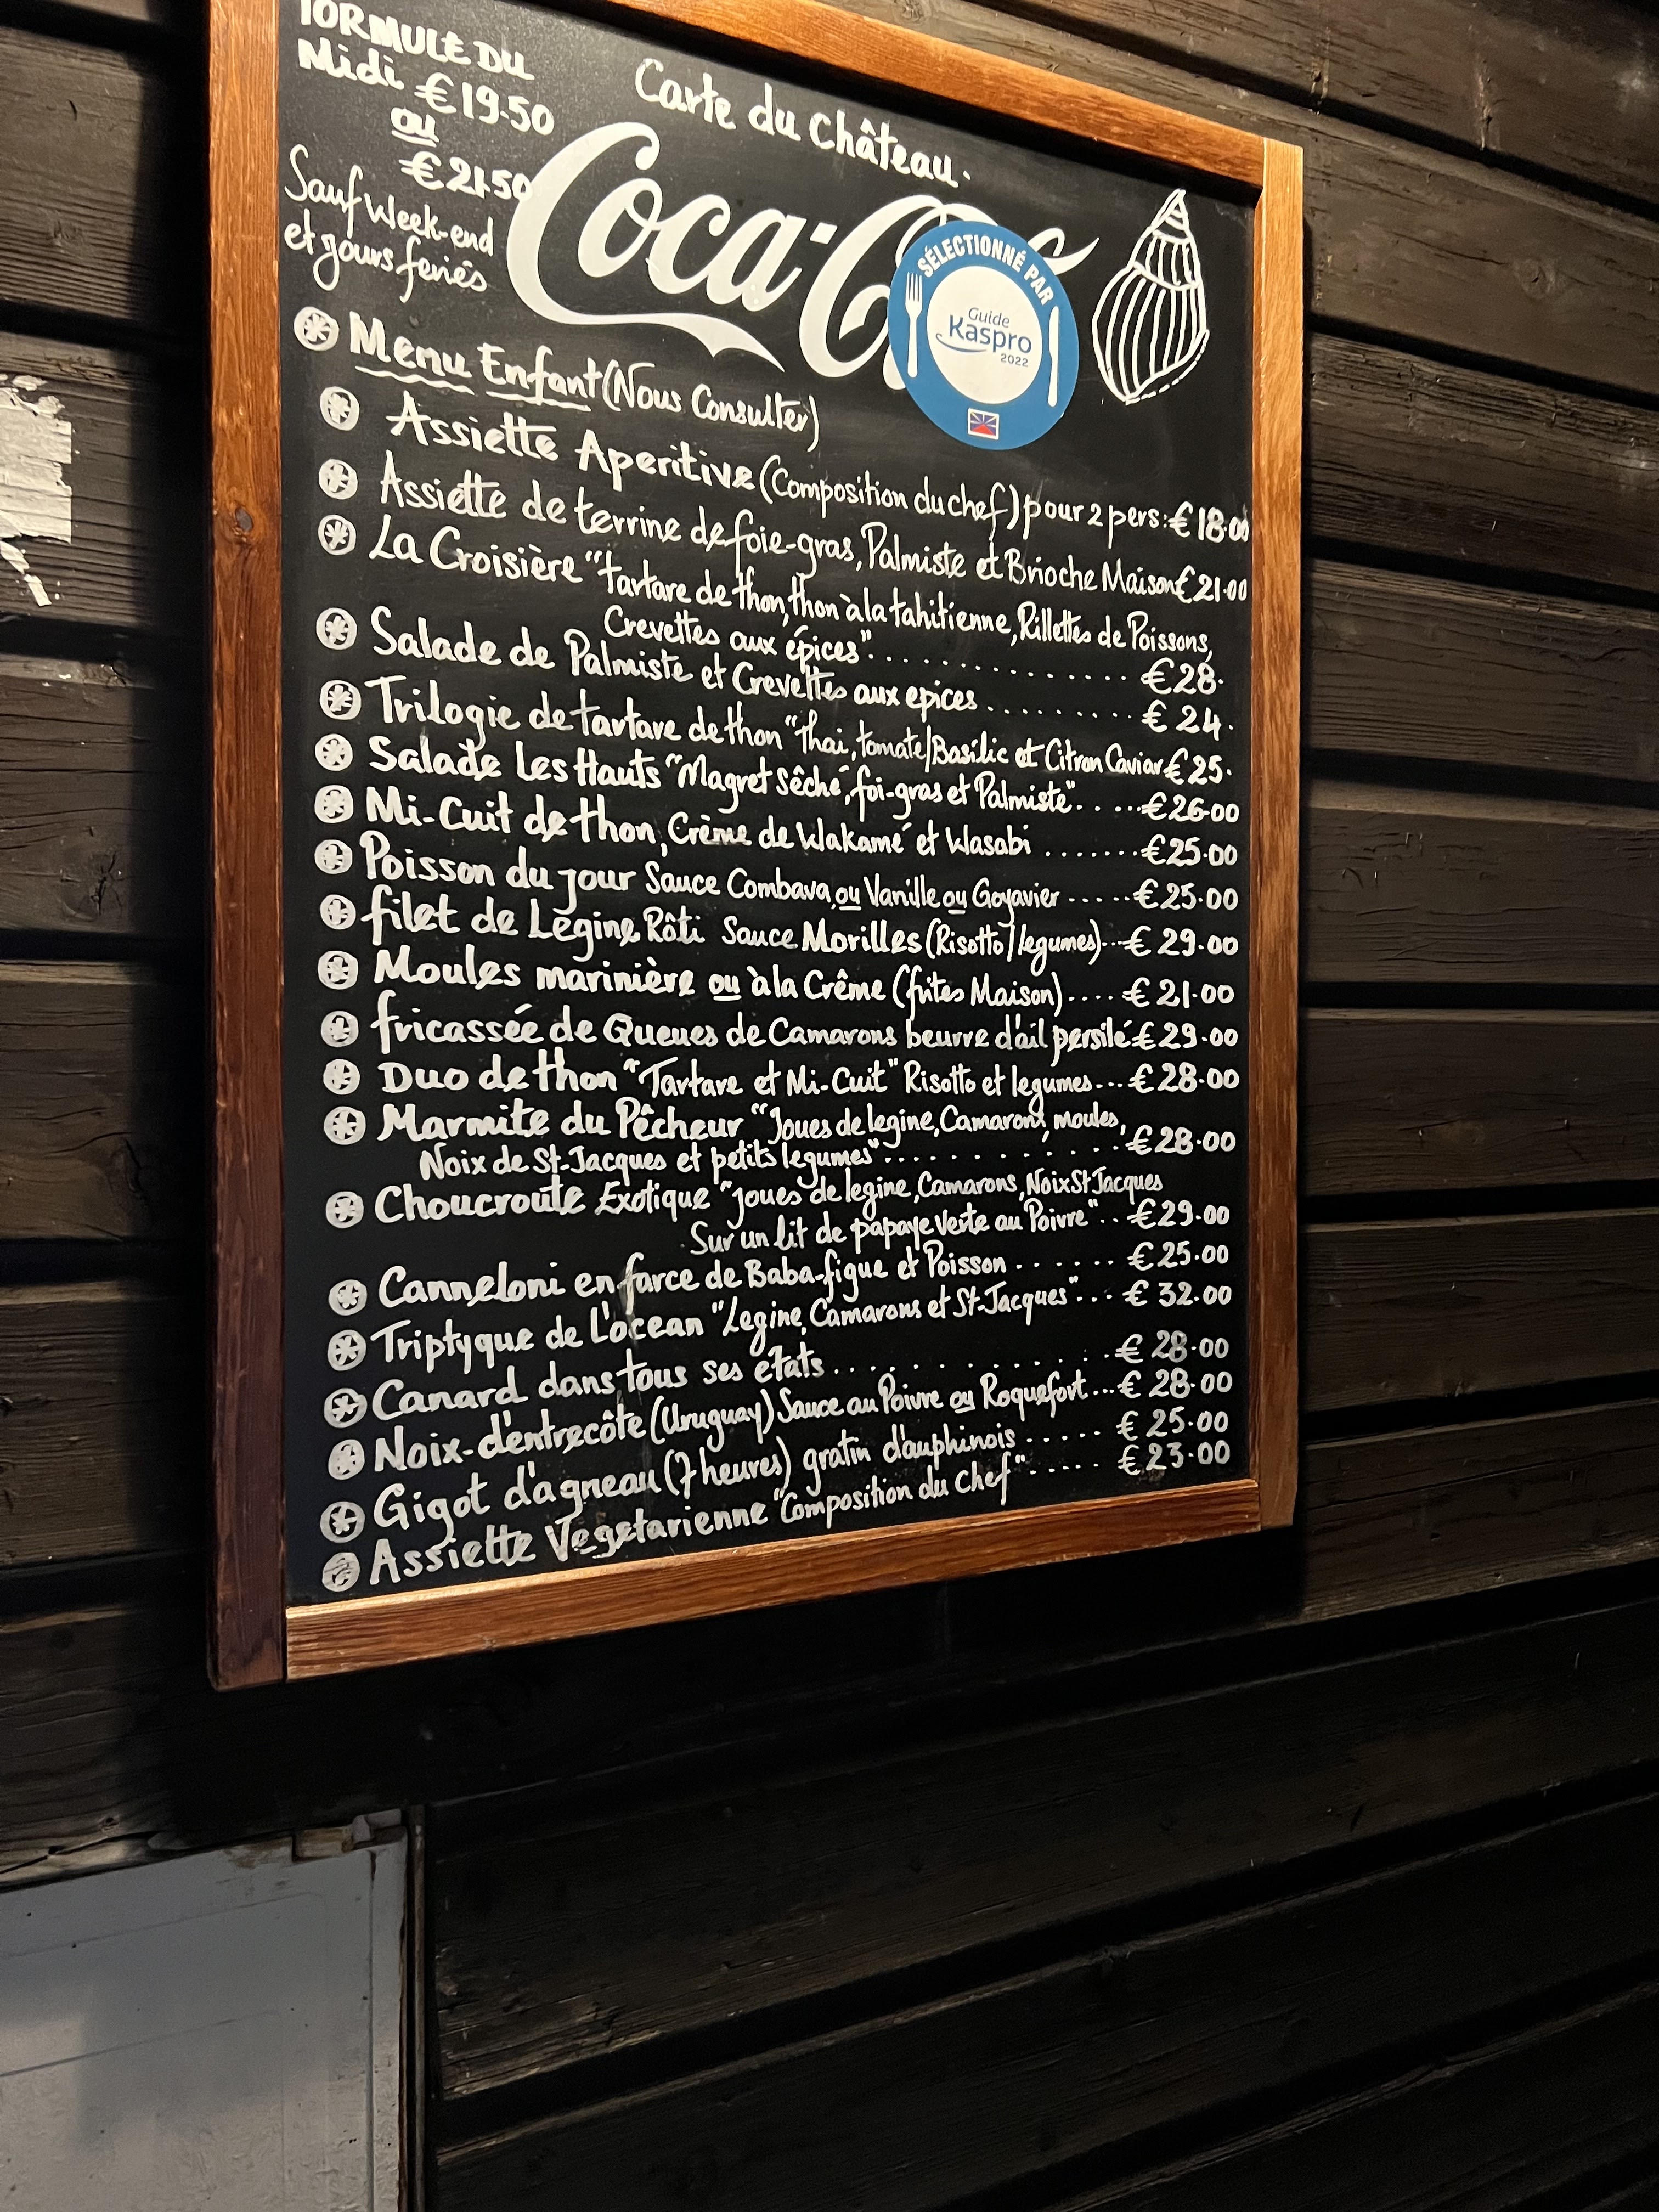 FORMULE DU
Midi €19.50
ou
€21.50
Sauf Week-end
et jours feriés
Carte du Château.
Coca-Co
SÉLECTIONNÉ PAR
Guide
Kaspro
2022
Menu Enfant (Nous Consulter)
Assiette Aperitive (Composition du chef) pour 2 pers: €18.00
Assiette de terrine de foie-gras, Palmiste et Brioche Maison €21.00
La Croisière "tartare de thon, thon à la tahitienne, Rillettes de Poissons,
Crevettes aux épices"............ €28.
Salade de Palmiste et Crevettes aux epices......... €24.
Trilogie de tartare de thon "Thai, tomate/Basilic et Citron Caviar €25.
Salade Les Hauts "Magret sêché, foi-gras et Palmiste".....€26.00
Mi-Cuit de thon, Crème de Wakamé et Wasabi .......€25.00
Poisson du jour Sauce Combava ou Vanille ou Goyavier .....€25.00
filet de Légine Rôti Sauce Morilles (Risotto/legumes)...€29.00
Moules marinière ou à la Crême (frites Maison)....€21.00
fricassée de Queues de Camarons beurre d'ail persilé €29.00
Duo de thon "Tartare et Mi-Cuit" Risotto et legumes...€28.00
Marmite du Pêcheur "Joues de legine, Camarons, moules,
Noix de St-Jacques et petits legumes"............€28.00
Choucroute Exotique "joues de legine, Camarons, Noix St Jacques
Sur un lit de papaye verte au Poivre"..€29.00
Canneloni en farce de Baba-figue et Poisson......€25.00
Triptyque de L'ocean "Legine, Camarons et St-Jacques"...€32.00
Canard dans tous ses etats..............€28.00
Noix-d'entrecôte (Uruguay) Sauce au Poivre ou Roquefort...€28.00
Gigot d'agneau (7 heures) gratin d'auphinois.....€25.00
Assiette Vegetarienne "Composition du Chef".....€23.00